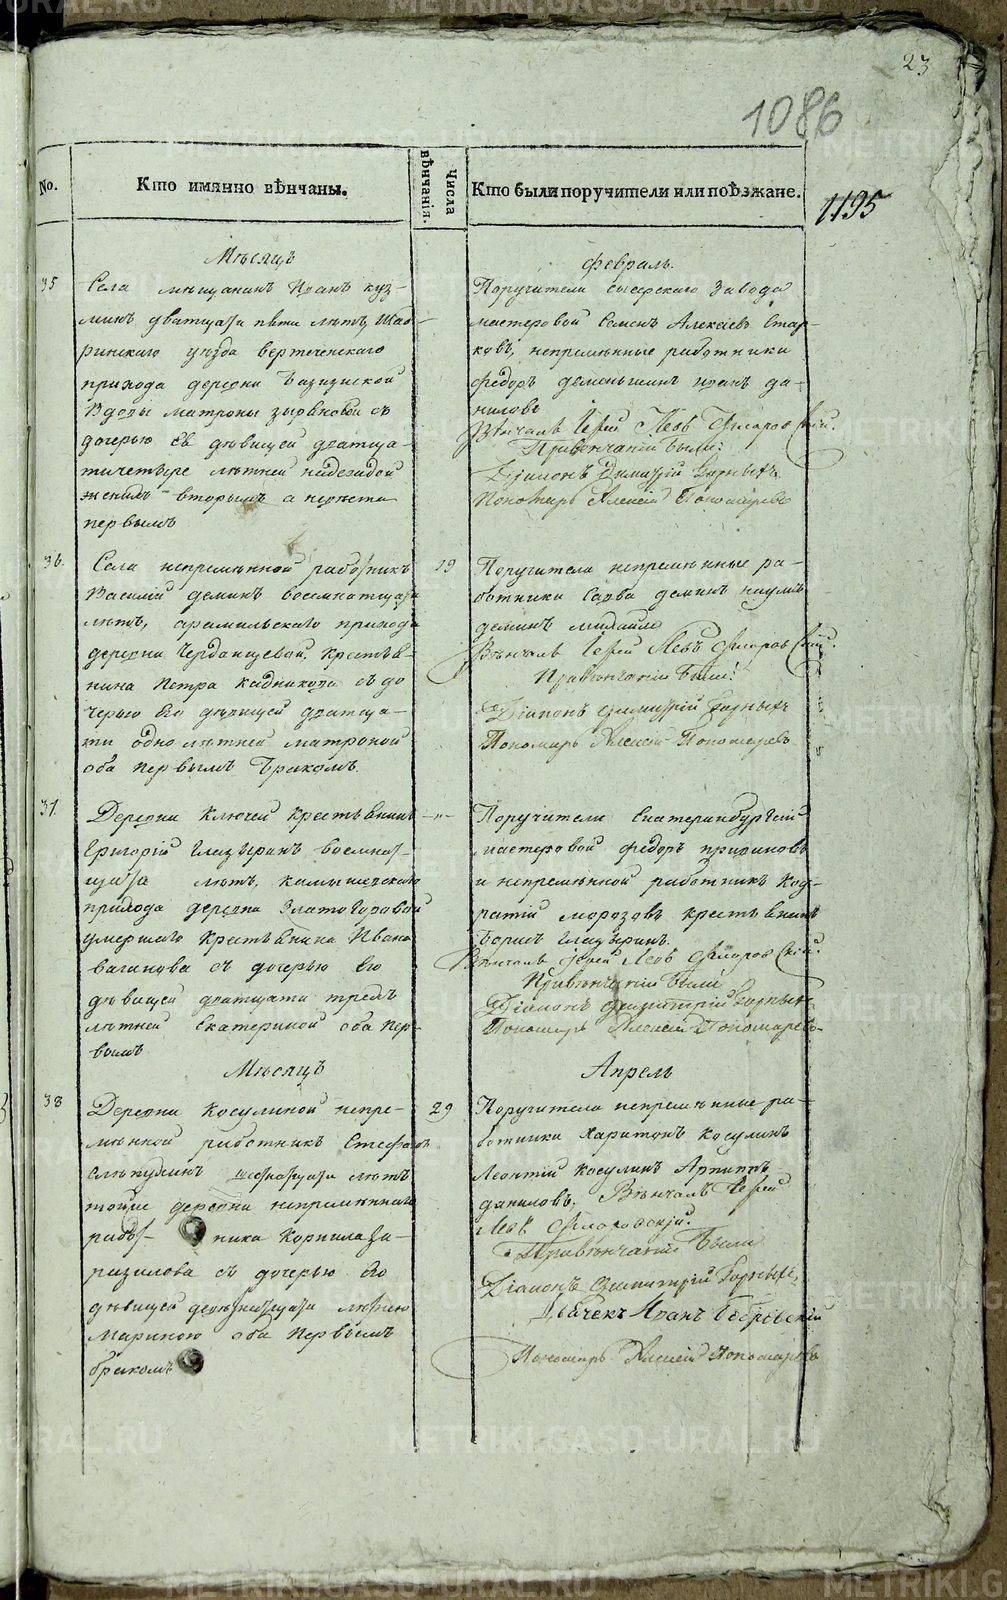 23
1086
1195
No.
Кто имянно вѣнчаны.
Числа вѣнчанія.
Кто были поручители или поѣзжане.
Мѣсяцъ
35
Села мѣщанинъ Иванъ Куз-
минъ дватцати пяти лѣтъ,
ринскаго уезда
прихода деревни
вдовы матроны зырѣновой съ
дочерью ея дѣвицей дватца-
тичетыре лѣтней надеждой
женихъ вторымъ а невеста
первымъ
Февраль.
Поручители сысерскаго завода
мастеровой Семенъ Алексѣевъ Стар-
ковъ, непремѣнные работники
федоръ деменьшинъ иванъ да-
ниловъ
Вѣнчалъ Іерей Левъ Флоровскій.
При венчаніи были:
Діаконъ Димитрій Горныхъ
Пономарь Алексій Пономаревъ
36.
Села непремѣнной работникъ
Василій деминъ восемнатцати
лѣтъ, арамильскаго прихода
деревни Черданцевой, крестья-
нина Петра кадникова съ до
черью его дѣвицей дватца-
ти одно лѣтней матроной
оба первымъ бракомъ.
19
Поручители непремѣнные ра-
ботники Савва деминъ наумъ
деминъ
Вѣнчалъ Іерей Левъ Флоровскій.
При вѣнчаніи были:
Діаконъ Димитрій Горныхъ
Пономарь Алексій Пономаревъ
37.
Деревни Ключей крестьянинъ
Григорій Глазыринъ восемнат-
цати лѣтъ, камышевскаго
прихода деревни Златогоровой
умершаго крестьянина Ивана
вагинова съ дочерью его
дѣвицей дватцати трехъ
лѣтней Екатериной оба пер-
вымъ
-"-
Поручители Екатеринбургскій
мастеровой федоръ
и непремѣнной работникъ Код-
ратій морозовъ крестьянинъ
Борисъ Глазыринъ.
Вѣнчалъ Іерей Левъ Флоровскій.
При вѣнчаніи были
Діаконъ Димитрій Горныхъ
Пономарь Алексій Пономаревъ
Мѣсяцъ
Апрель
38
Деревни Косулиной непре-
мѣнной работникъ Стефанъ
лѣтъ
тойже деревни непремѣннаго
работ- ника Корнила
съ дочерью его
дѣвицей лѣтнею
Мариною оба первымъ
бракомъ
29
Поручители непремѣнные ра-
ботники Харитонъ Косулинъ
Леонтій Косулинъ Архипъ
даниловъ. Вѣнчалъ Іерей
Левъ Флоровскій.
При вѣнчаніи были
Діаконъ Димитрій Горныхъ,
Дьячекъ Иванъ Бобровскій
Пономарь Алексій Пономаревъ
METRIKI.GASO-URAL.RU